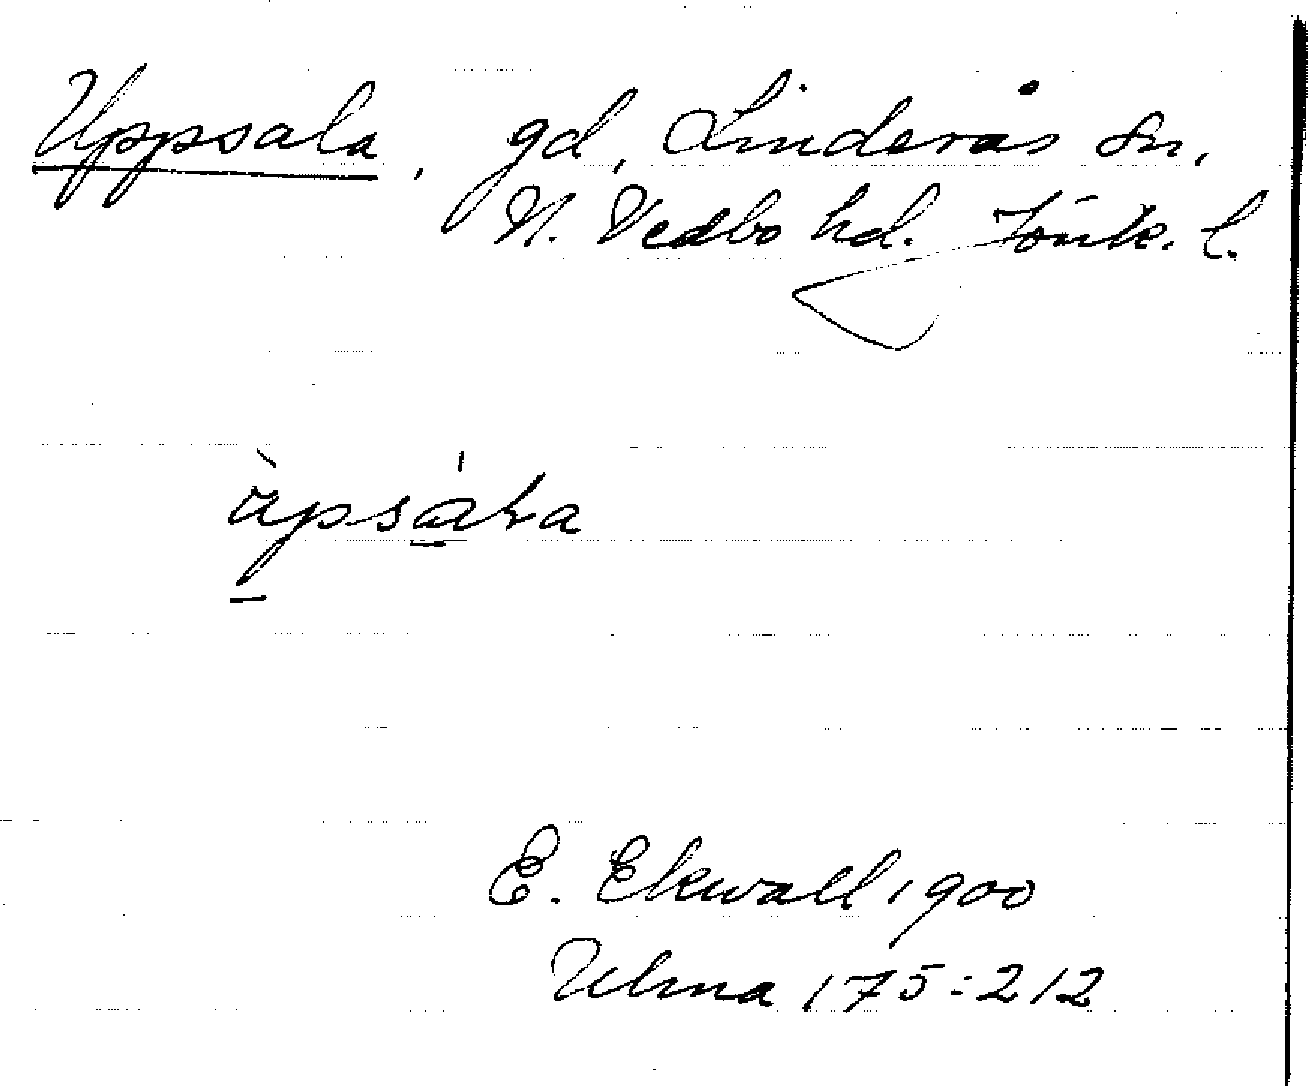 Uppsala, gd, Linderås sn,
N. Vedbo hd. Jönk. l.
E. Ekwall 1900
Ulma 175:212